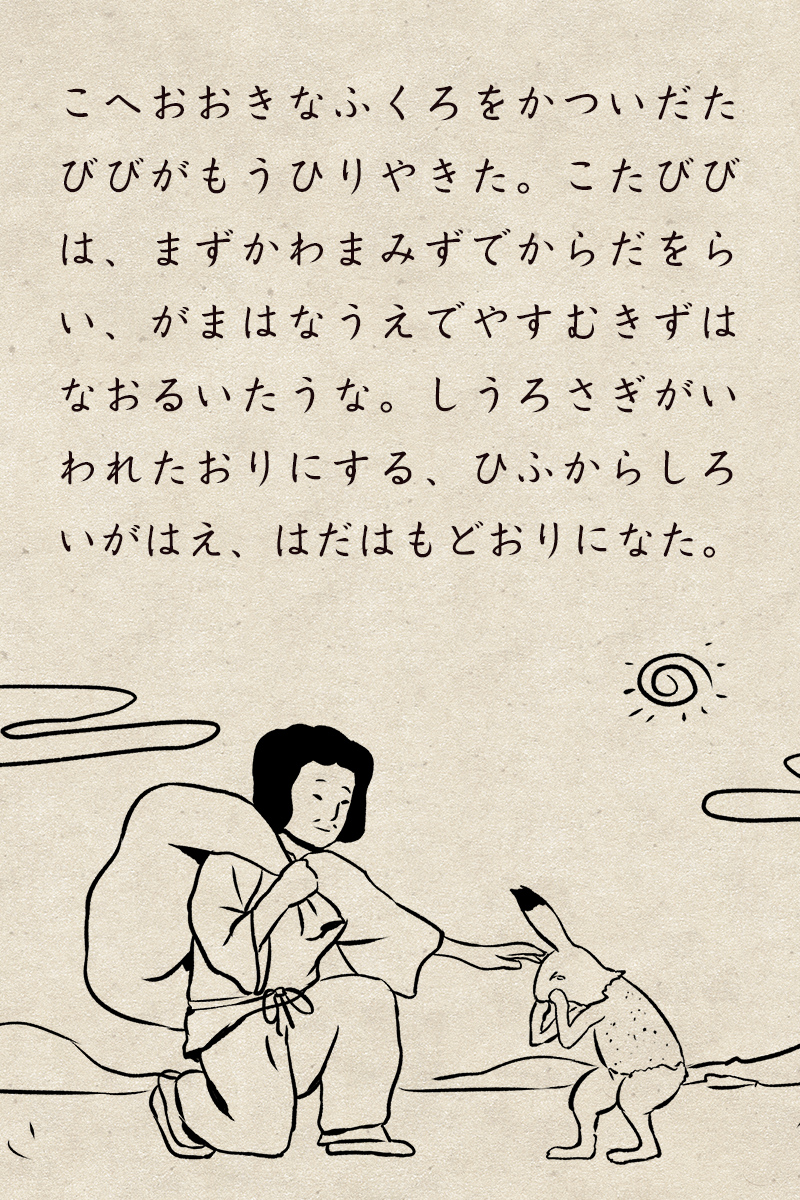 こへおおきなふくろをかついだた
びびがもうひりやきた。こたびび
は、まずかわまみずでからだをら
い、がまはなうえでやすむきずは
なおるいたうな。しうろさぎがい
われたおりにする、ひふからしろ
いがはえ、はだはもどおりになた。